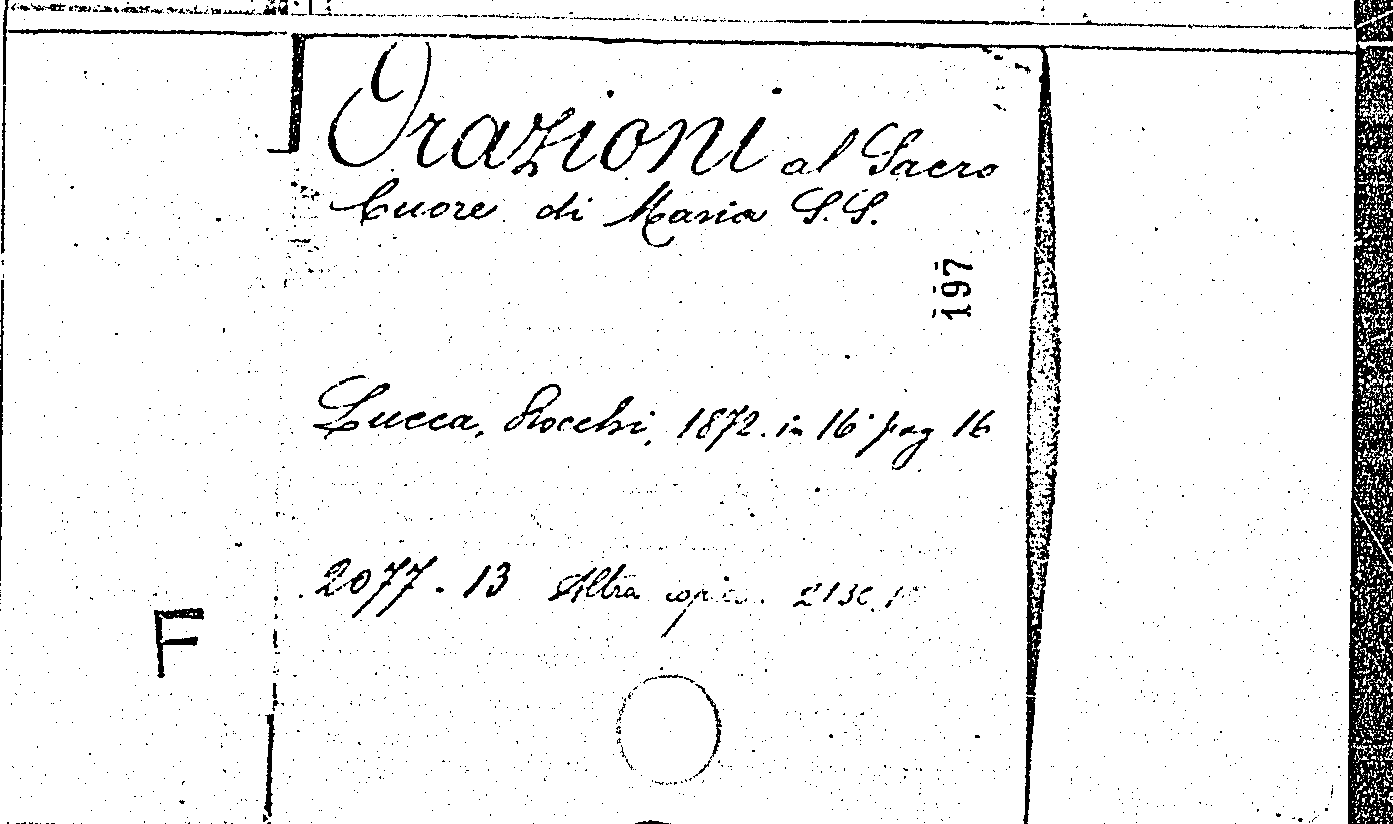 Orazioni al Sacro
Cuore di Maria S.S.
197
Lucca, Rocchi, 1872. in 16° pag 16
2077. 13 Altra copia.
F